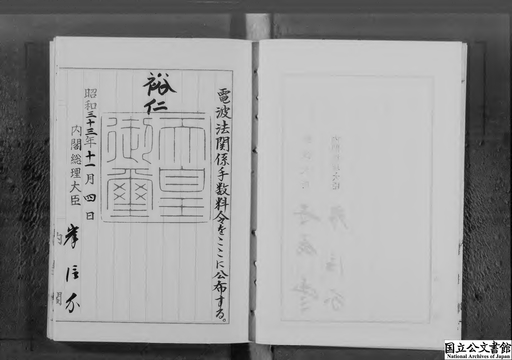 電波法関係手数料令をここに公布する。
裕仁
天皇御璽
昭和三十三年十一月四日
内閣総理大臣 岸信介
内閣
国立公文書館
National Archives of Japan